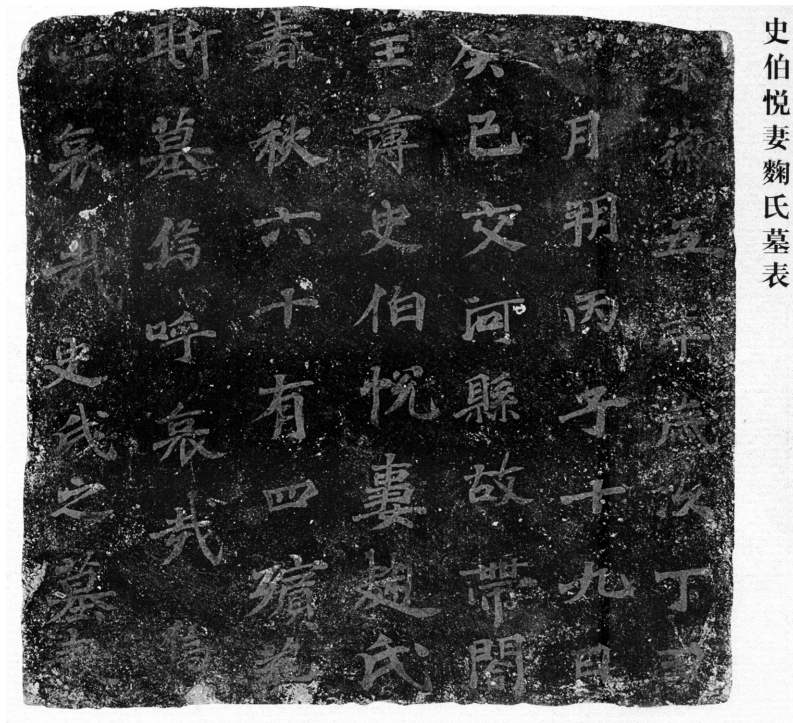 史伯悦妻麴氏墓表
永徽五年歲次丁卯
四月朔丙子十九日
癸巳交河縣故帶閤
主薄史伯悅妻麴氏
春秋六十有四殯葬
斯墓嗚呼哀哉嗚
呼哀哉史氏之墓表